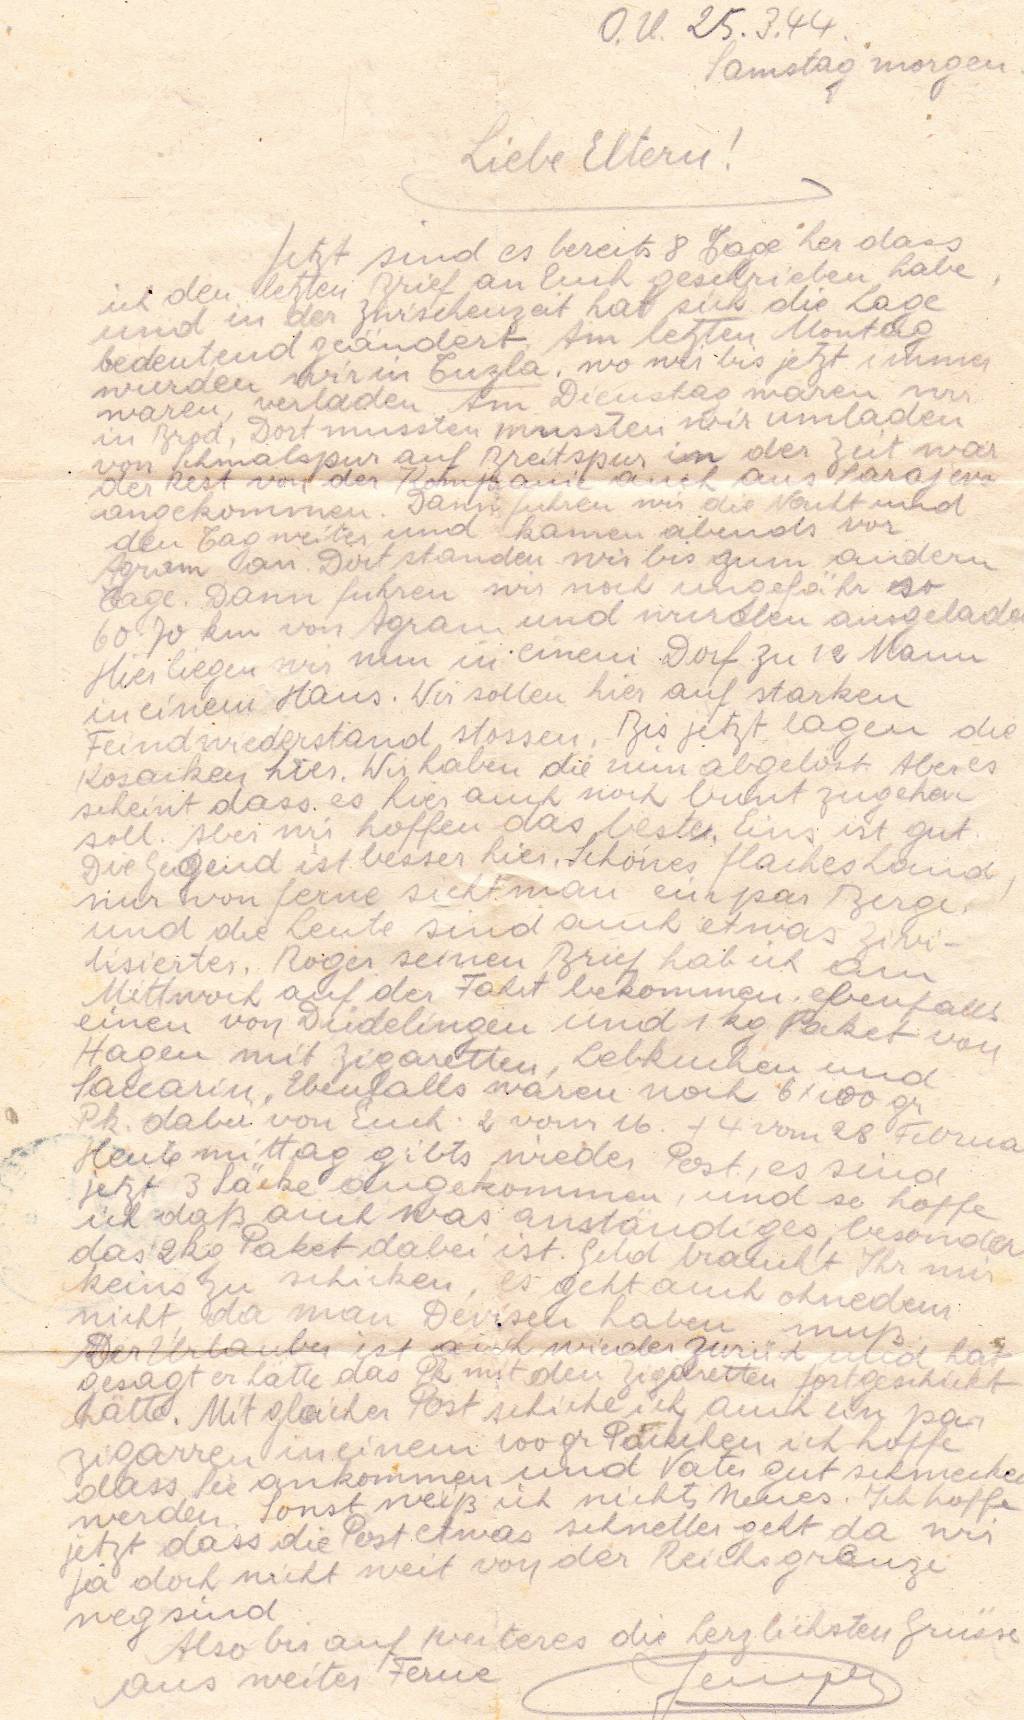 O.U. 25.3.44.
Samstag morgen.
Liebe Eltern!
Jetzt sind es bereits 8 Tage her dass
ich den letzten Brief an Euch geschrieben habe,
und in der Zwischenzeit hat sich die Lage
bedeutend geändert. Am letzten Montag
wurden wir in Tuzla, wo wir bis jetzt immer
waren, verladen. Am Dienstag waren wir
in Brod, Dort mussten mussten wir umladen
von Schmalspur auf Breitspur in der Zeit war
der Rest von der Kompanie auch aus Sarajevo
angekommen. Dann fuhren wir die Nacht und
den Tag weiter und kamen abends vor
Agram an. Dort standen wir bis zum andern
Tage. Dann fuhren wir noch ungefähr so
60-70 km von Agram und wurden ausgeladen
Hier liegen wir nun in einem Dorf zu 12 Mann
in einem Haus. Wir sollen hier auf starken
Feindwiederstand stossen. Bis jetzt lagen die
Kosacken hier. Wir haben die nun abgelöst. Aber es
scheint dass es hier auch noch bunt zugehen
soll. Aber wir hoffen das beste. Eins ist gut.
Die Gegend ist besser hier. Schönes flaches Land,
nur von ferne sieht man ein par Berge.
und die Leute sind auch etwas zivi-
lisierter. Roger seinen Brief hab ich am
Mittwoch auf der Fahrt bekommen. ebenfalls
einen von Düdelingen und 1 kg Paket von
Hagen mit Zigaretten, Lebkuchen und
Saccarin, Ebenfalls waren noch 6 100 gr
Pk. dabei von Euch. 2 vom 16. + 4 vom 28 Februa
Heute mittag gibts wieder Post, es sind
jetzt 3 Säcke angekommen, und so hoffe
ich daß auch was anständiges, besonders
das 2 kg Paket dabei ist. Geld braucht Ihr mir
keins zu schicken, es geht auch ohnedem
nicht, da man Devisen haben muß.
Der Urlauber ist auch wieder zurück und hat
gesagt er hätte das Pk mit den Zigaretten fortgeschickt
hätte. Mit gleicher Post schicke ich auch ein par
Zigarren in einem 100 gr Päckchen ich hoffe
dass Sie ankommen und Vater gut schmecken
werden. Sonst weiß ich nichts Neues. Ich hoffe
jetzt dass die Post etwas schneller geht da wir
ja doch nicht weit von der Reichsgrenze
weg sind.
Also bis auf weiteres die herzlichsten Grüsse
aus weiter Ferne